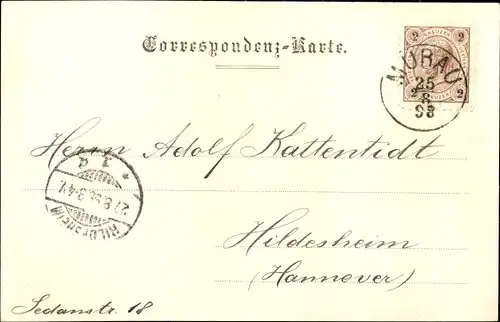 Correspondenz-Karte.
2 KREUZER 2
2 KREUZER 2
MURAU
25
8
98
Herrn Adolf Kattentidt
HILDESHEIM
27.8.98.3-4V.
* 1 a
Hildesheim
(Hannover)
Sedanstr. 18